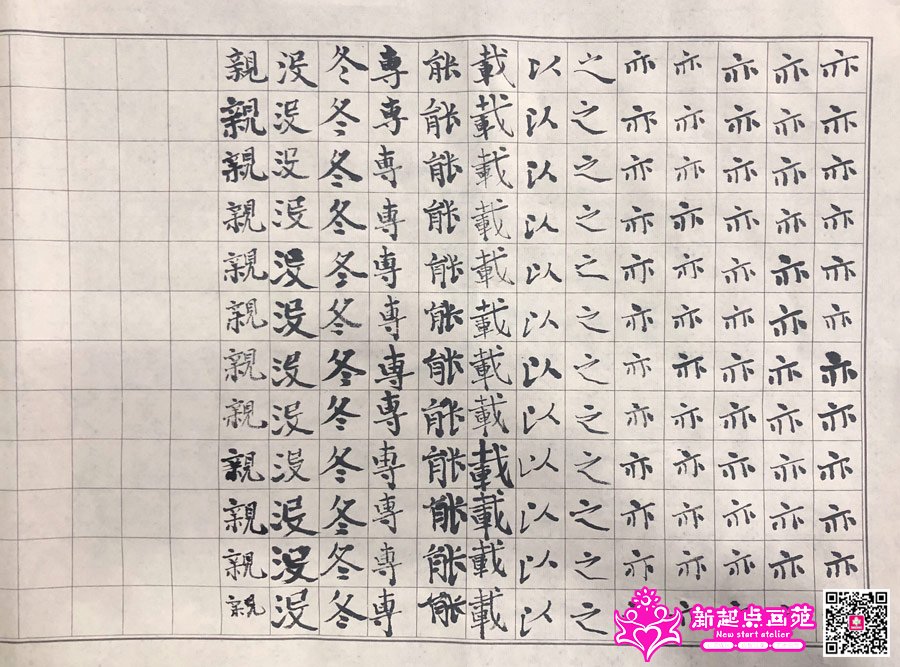 亦亦亦亦亦亦亦亦亦亦亦
亦亦亦亦亦亦亦亦亦亦亦
亦亦亦亦亦亦亦亦亦亦亦
亦亦亦亦亦亦亦亦亦亦亦
亦亦亦亦亦亦亦亦亦亦亦
之之之之之之之之之之之之
以以以以以以以以以以以以
載載載載載載載載載載載載
能能能能能能能能能能能能
専専専専専専専専専専専専
冬冬冬冬冬冬冬冬冬冬冬冬
没没没没没没没没没没没没
親親親親親親親親親親親親
新起点画苑
New start atelier